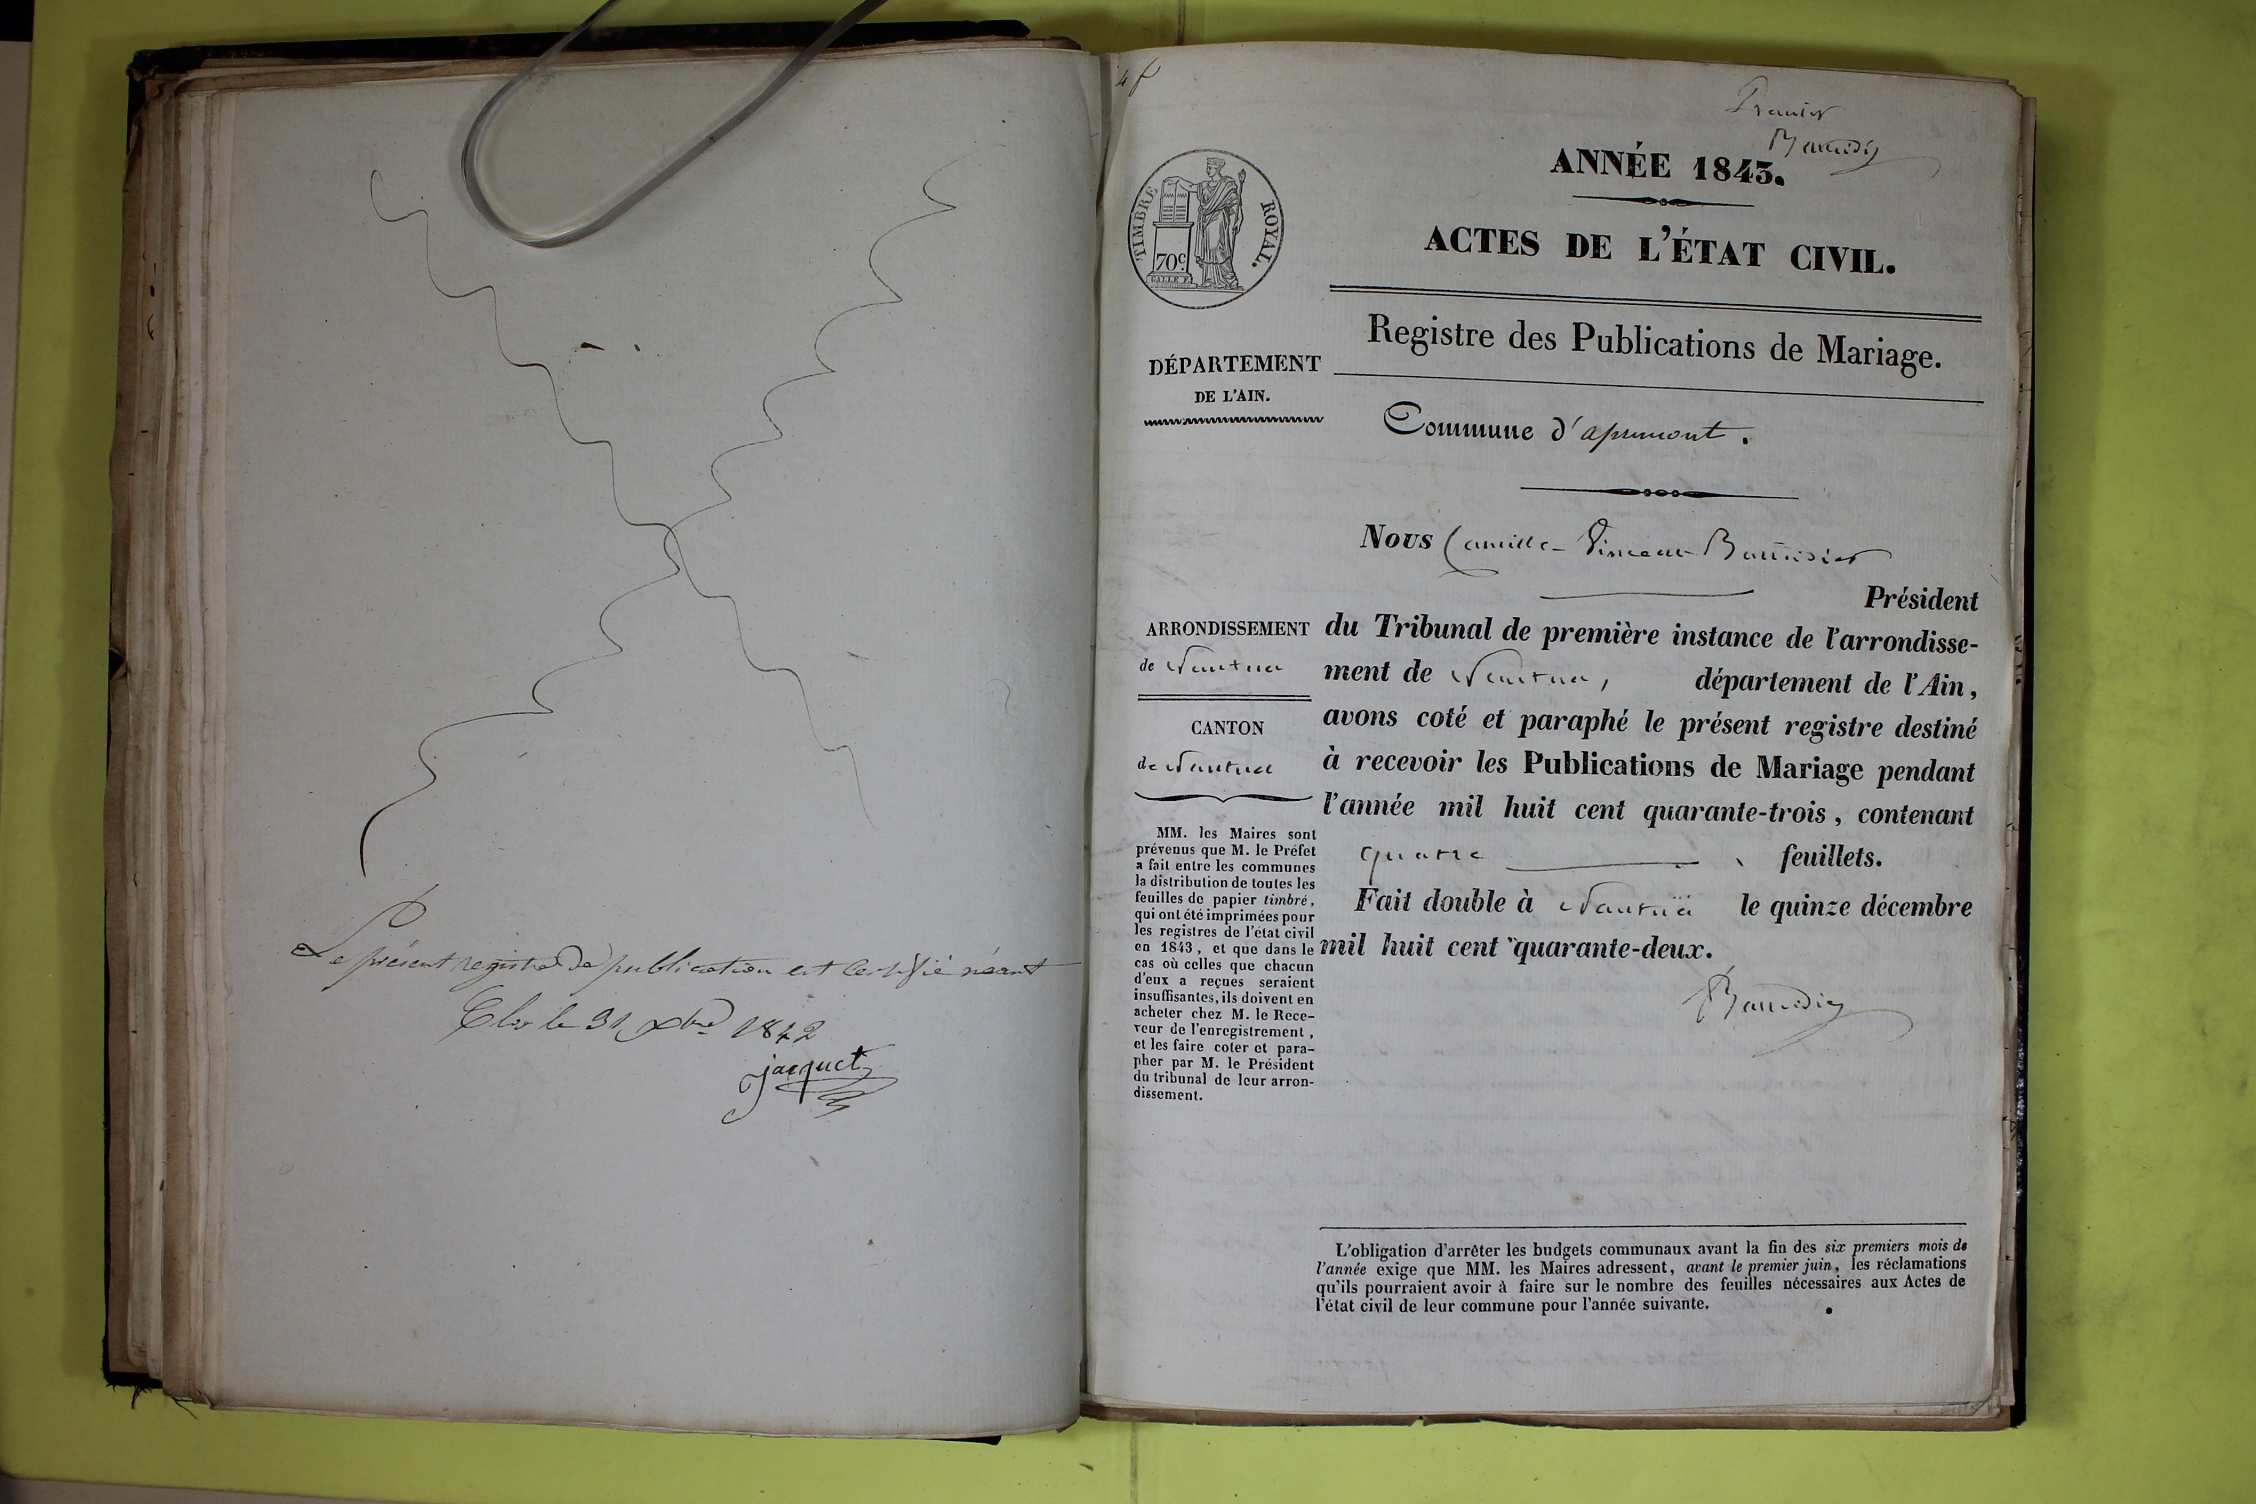 Le présent registre de publication est certifié néant
Clos le 31 Xbre 1842
jacquet
4 f
Premier
ANNÉE 1843.
ACTES DE L'ÉTAT CIVIL.
TIMBRE ROYAL.
70c
Registre des Publications de Mariage.
DÉPARTEMENT
DE L'AIN.
Commune d'apremont.
Nous Camille Vincent
Président
ARRONDISSEMENT
de Nantua
du Tribunal de première instance de l'arrondisse-
ment de Nantua, département de l'Ain,
CANTON
de Nantua
avons coté et paraphé le présent registre destiné
à recevoir les Publications de Mariage pendant
l'année mil huit cent quarante-trois, contenant
quatre feuillets.
Fait double à Nantua le quinze décembre
mil huit cent quarante-deux.
MM. les Maires sont
prévenus que M. le Préfet
a fait entre les communes
la distribution de toutes les
feuilles de papier timbré,
qui ont été imprimées pour
les registres de l'état civil
en 1843, et que dans le
cas où celles que chacun
d'eux a reçues seraient
insuffisantes, ils doivent en
acheter chez M. le Rece-
veur de l'enregistrement,
et les faire coter et para-
pher par M. le Président
du tribunal de leur arron-
dissement.
L'obligation d'arrêter les budgets communaux avant la fin des six premiers mois de
l'année exige que MM. les Maires adressent, avant le premier juin, les réclamations
qu'ils pourraient avoir à faire sur le nombre des feuilles nécessaires aux Actes de
l'état civil de leur commune pour l'année suivante.